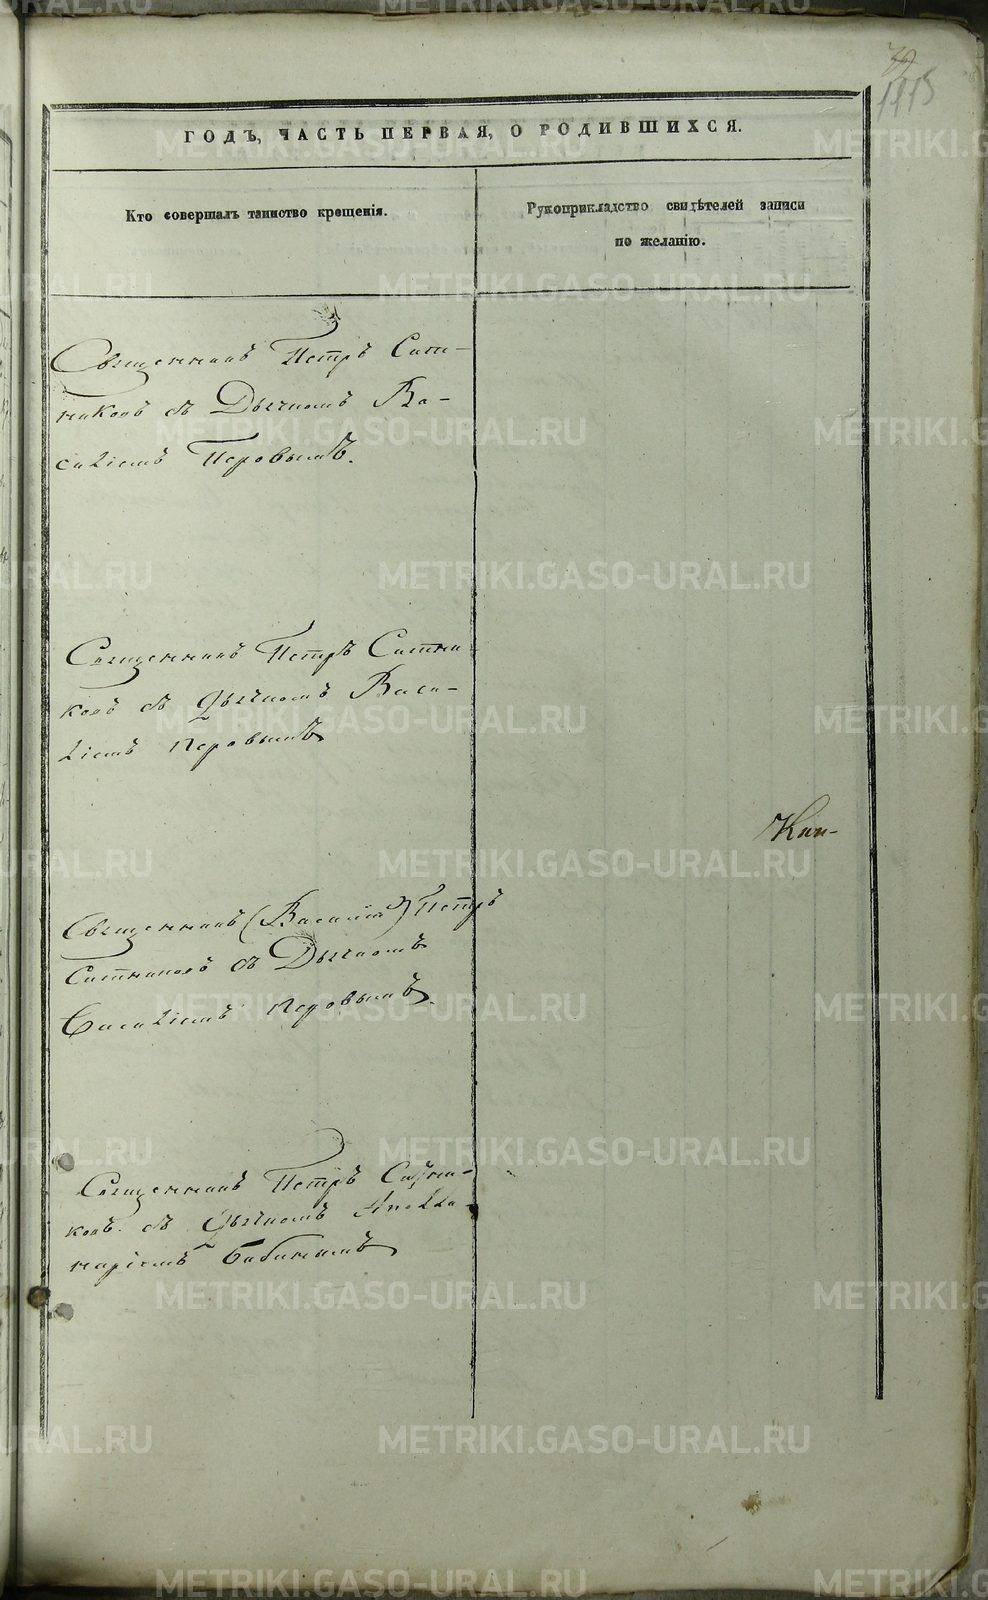 1115
ГОДЪ, ЧАСТЬ ПЕРВАЯ, О РОДИВШИХСЯ.
Кто совершалъ таинство крещенія.
Рукоприкладство свидѣтелей записи
по желанію.
Священникъ Петръ Сит-
никовъ съ Дьячкомъ Ва-
силіемъ Перовымъ.
Священникъ Петръ Ситни-
ковъ съ Дьячкомъ Васи-
ліемъ Перовымъ
Священникъ (Василій) Петръ
Ситниковъ съ Дьячкомъ
Василіемъ Перовымъ.
Священникъ Петръ Ситни-
ковъ съ Дьячкомъ Аполли-
наріемъ Бабинымъ
METRIKI.GASO-URAL.RU